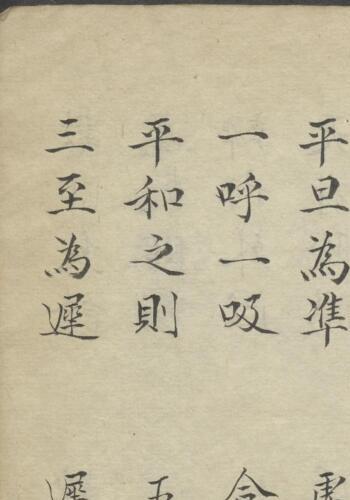 平旦為凖
一呼一吸
平和之則
三至為遲